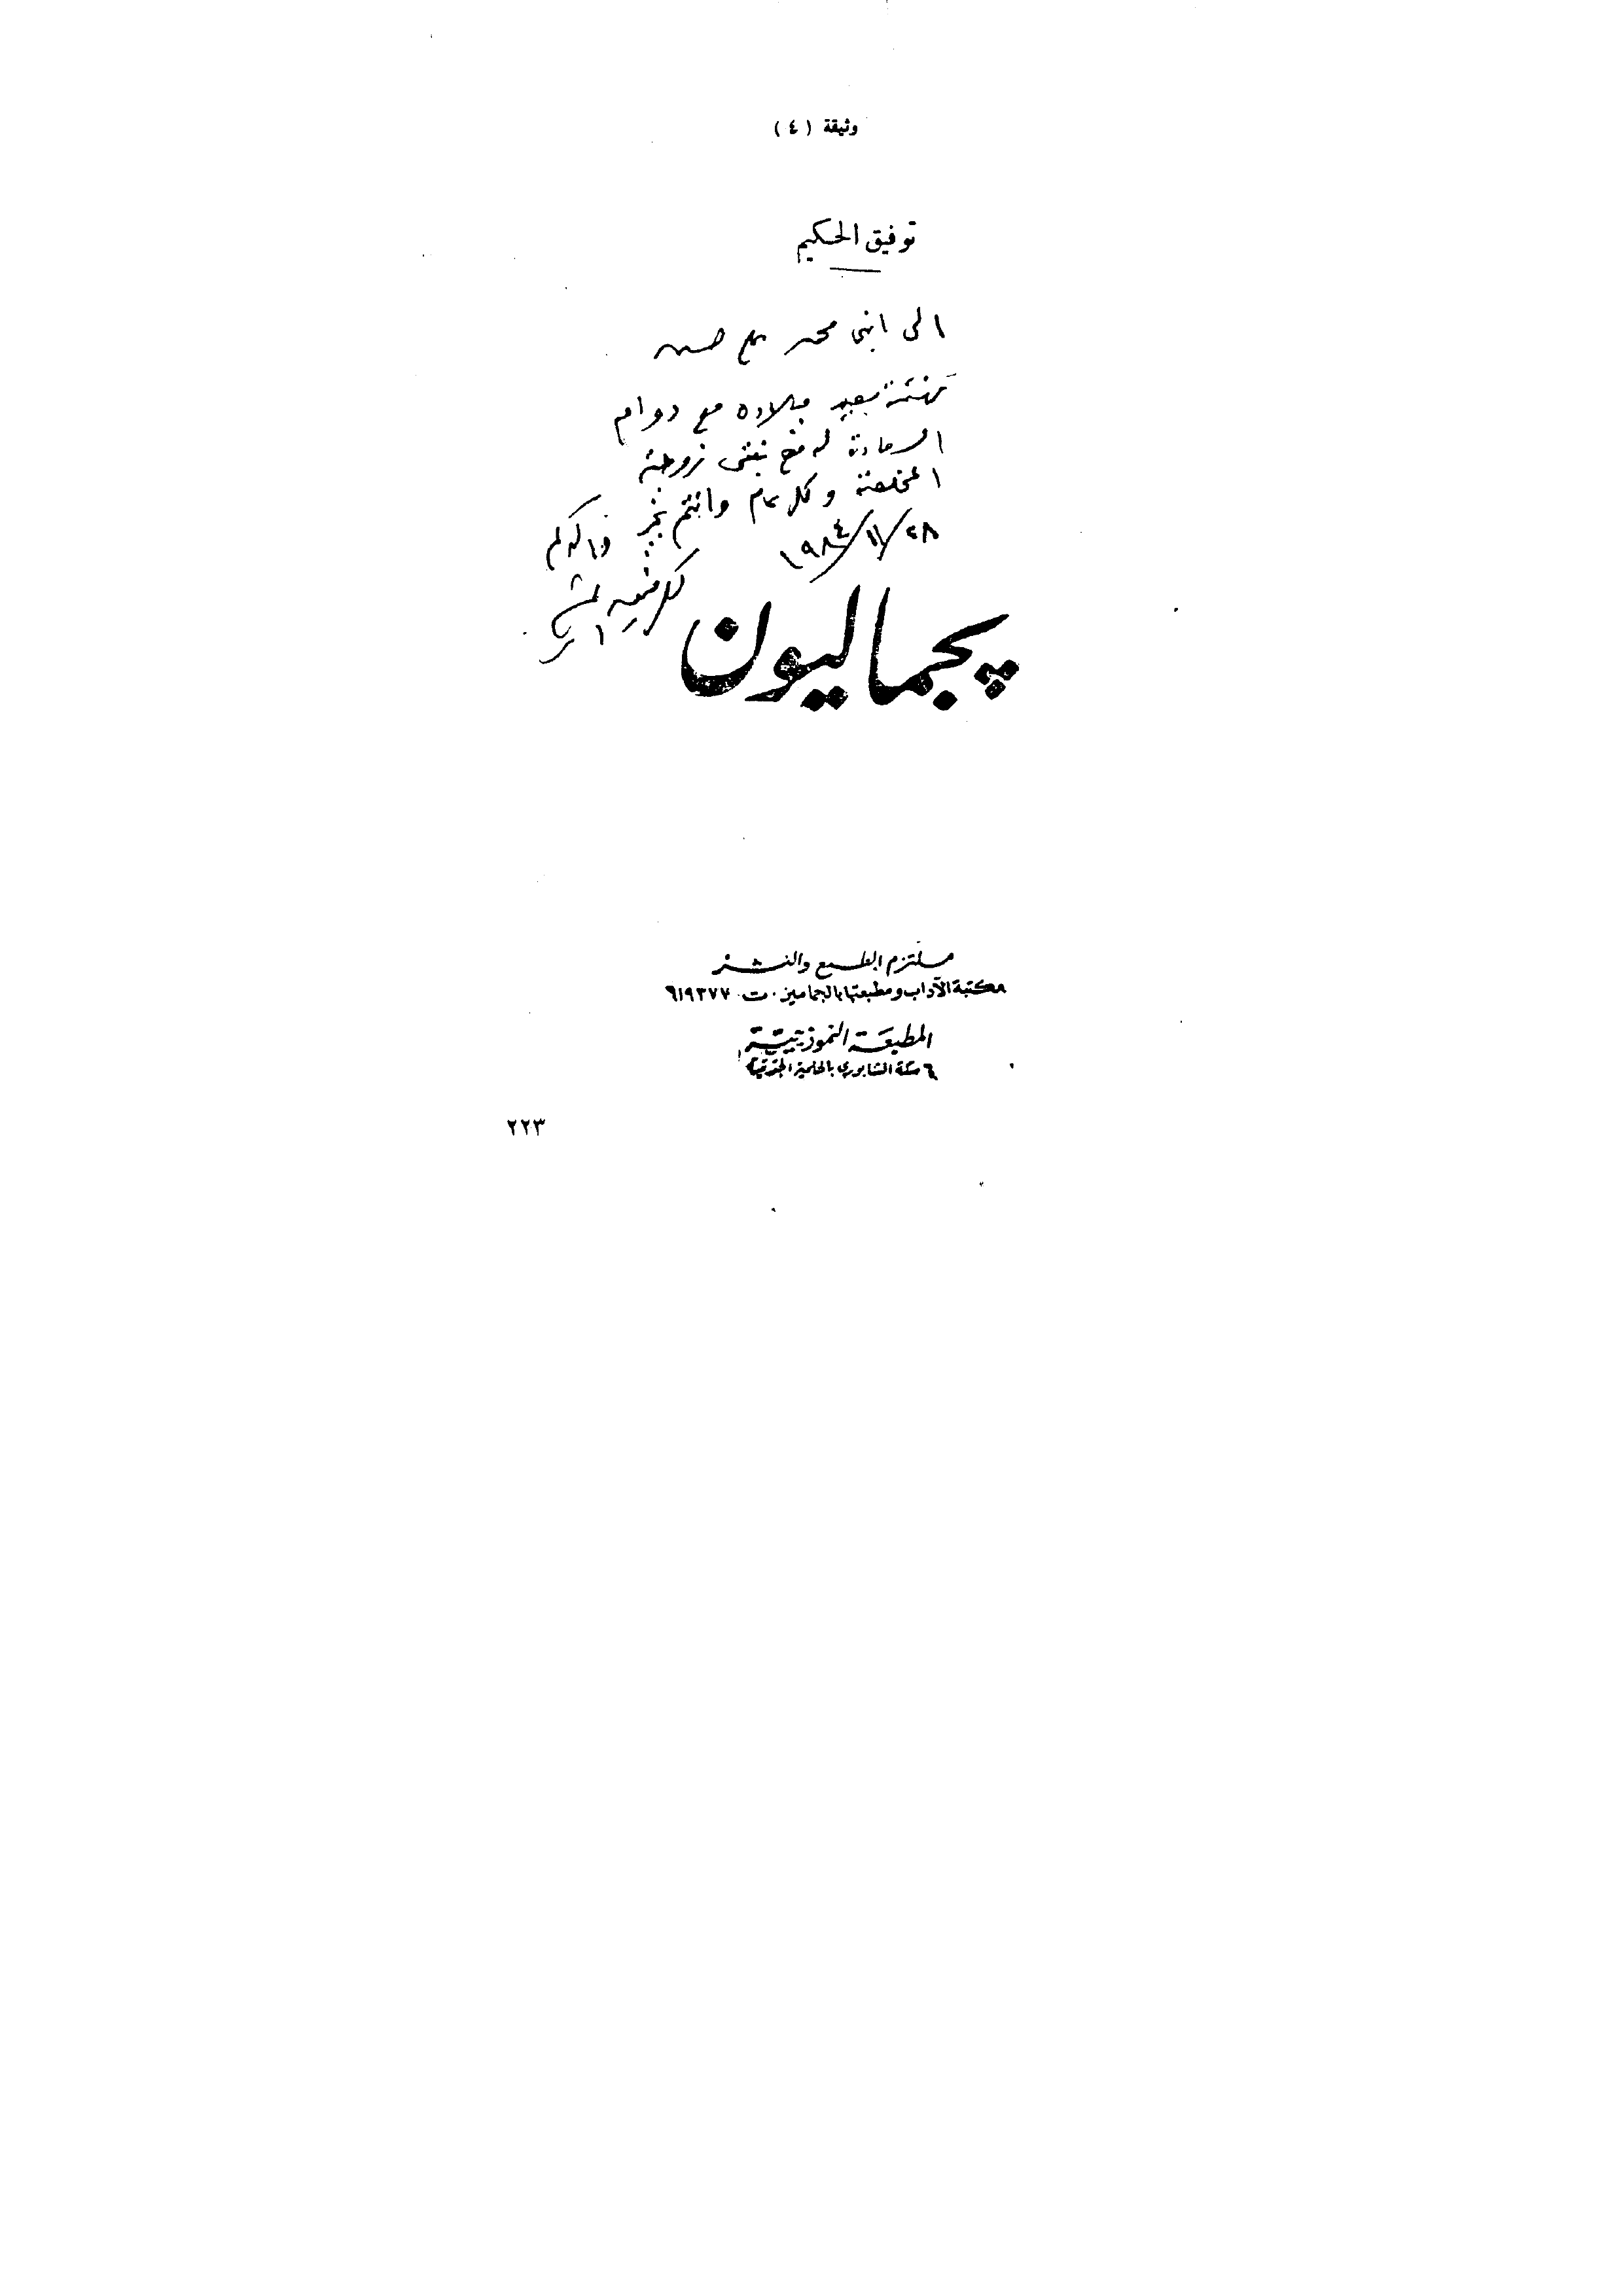 وثيقة ( ٤ )
توفيق الحكيم
الى ابنى محمد حسين
تهنئة بعيد ميلاده مع دوام
السعادة له مع بنتى زوجته
المخلصة وكل عام وانتم بخير
٢٨/١١/١٩٨٤
پجماليون
ملتزم الطبع والنشر
مكتبة الآداب ومطبعتها بالجماميز . ت ٩١٩٣٧٧
المطبعة النموذجية
٦ سكة الشابوري بالحلمية الجديدة
٢٢٣